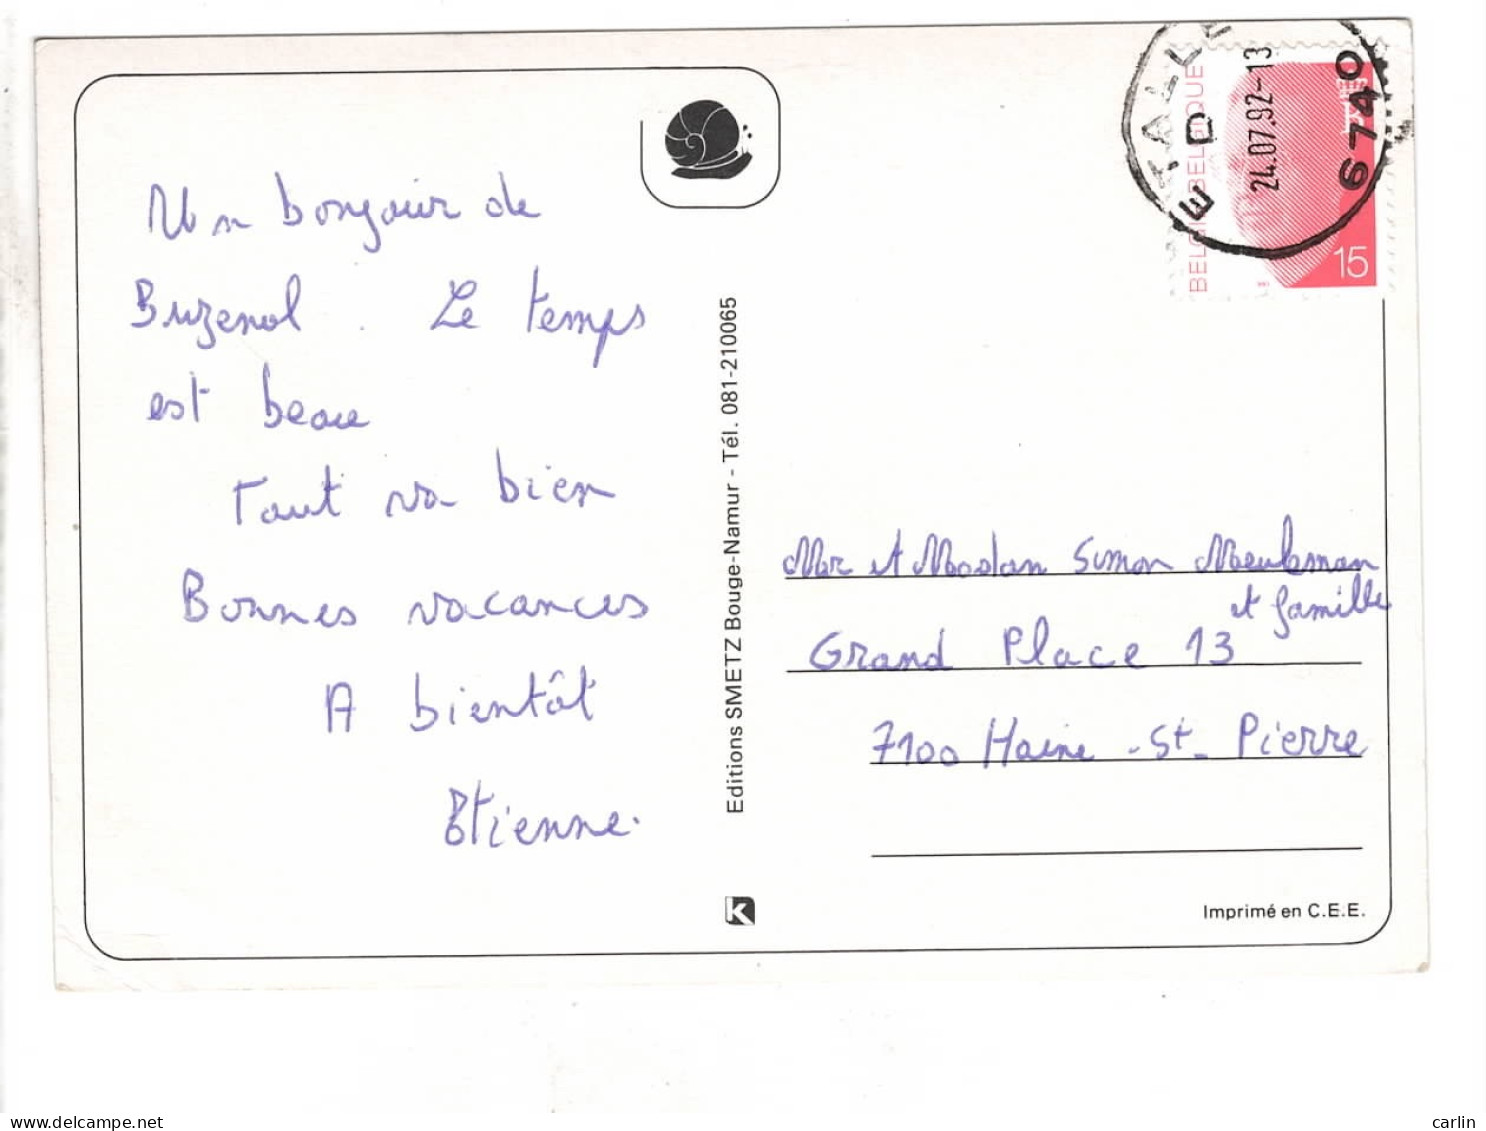 Un bonjour de
Buzenol. Le temps
est beau
Tout va bien
Bonnes vacances
A bientôt
Etienne.
Editions SMETZ Bouge-Namur - Tél. 081-210065
K
BELGIË-BELGIQUE
15
ETALLE
D
24.07.92-13
6740
Mr et Madam Simon Meuleman
et famille
Grand Place 13
7100 Haine-St-Pierre
Imprimé en C.E.E.
www.delcampe.net
carlin